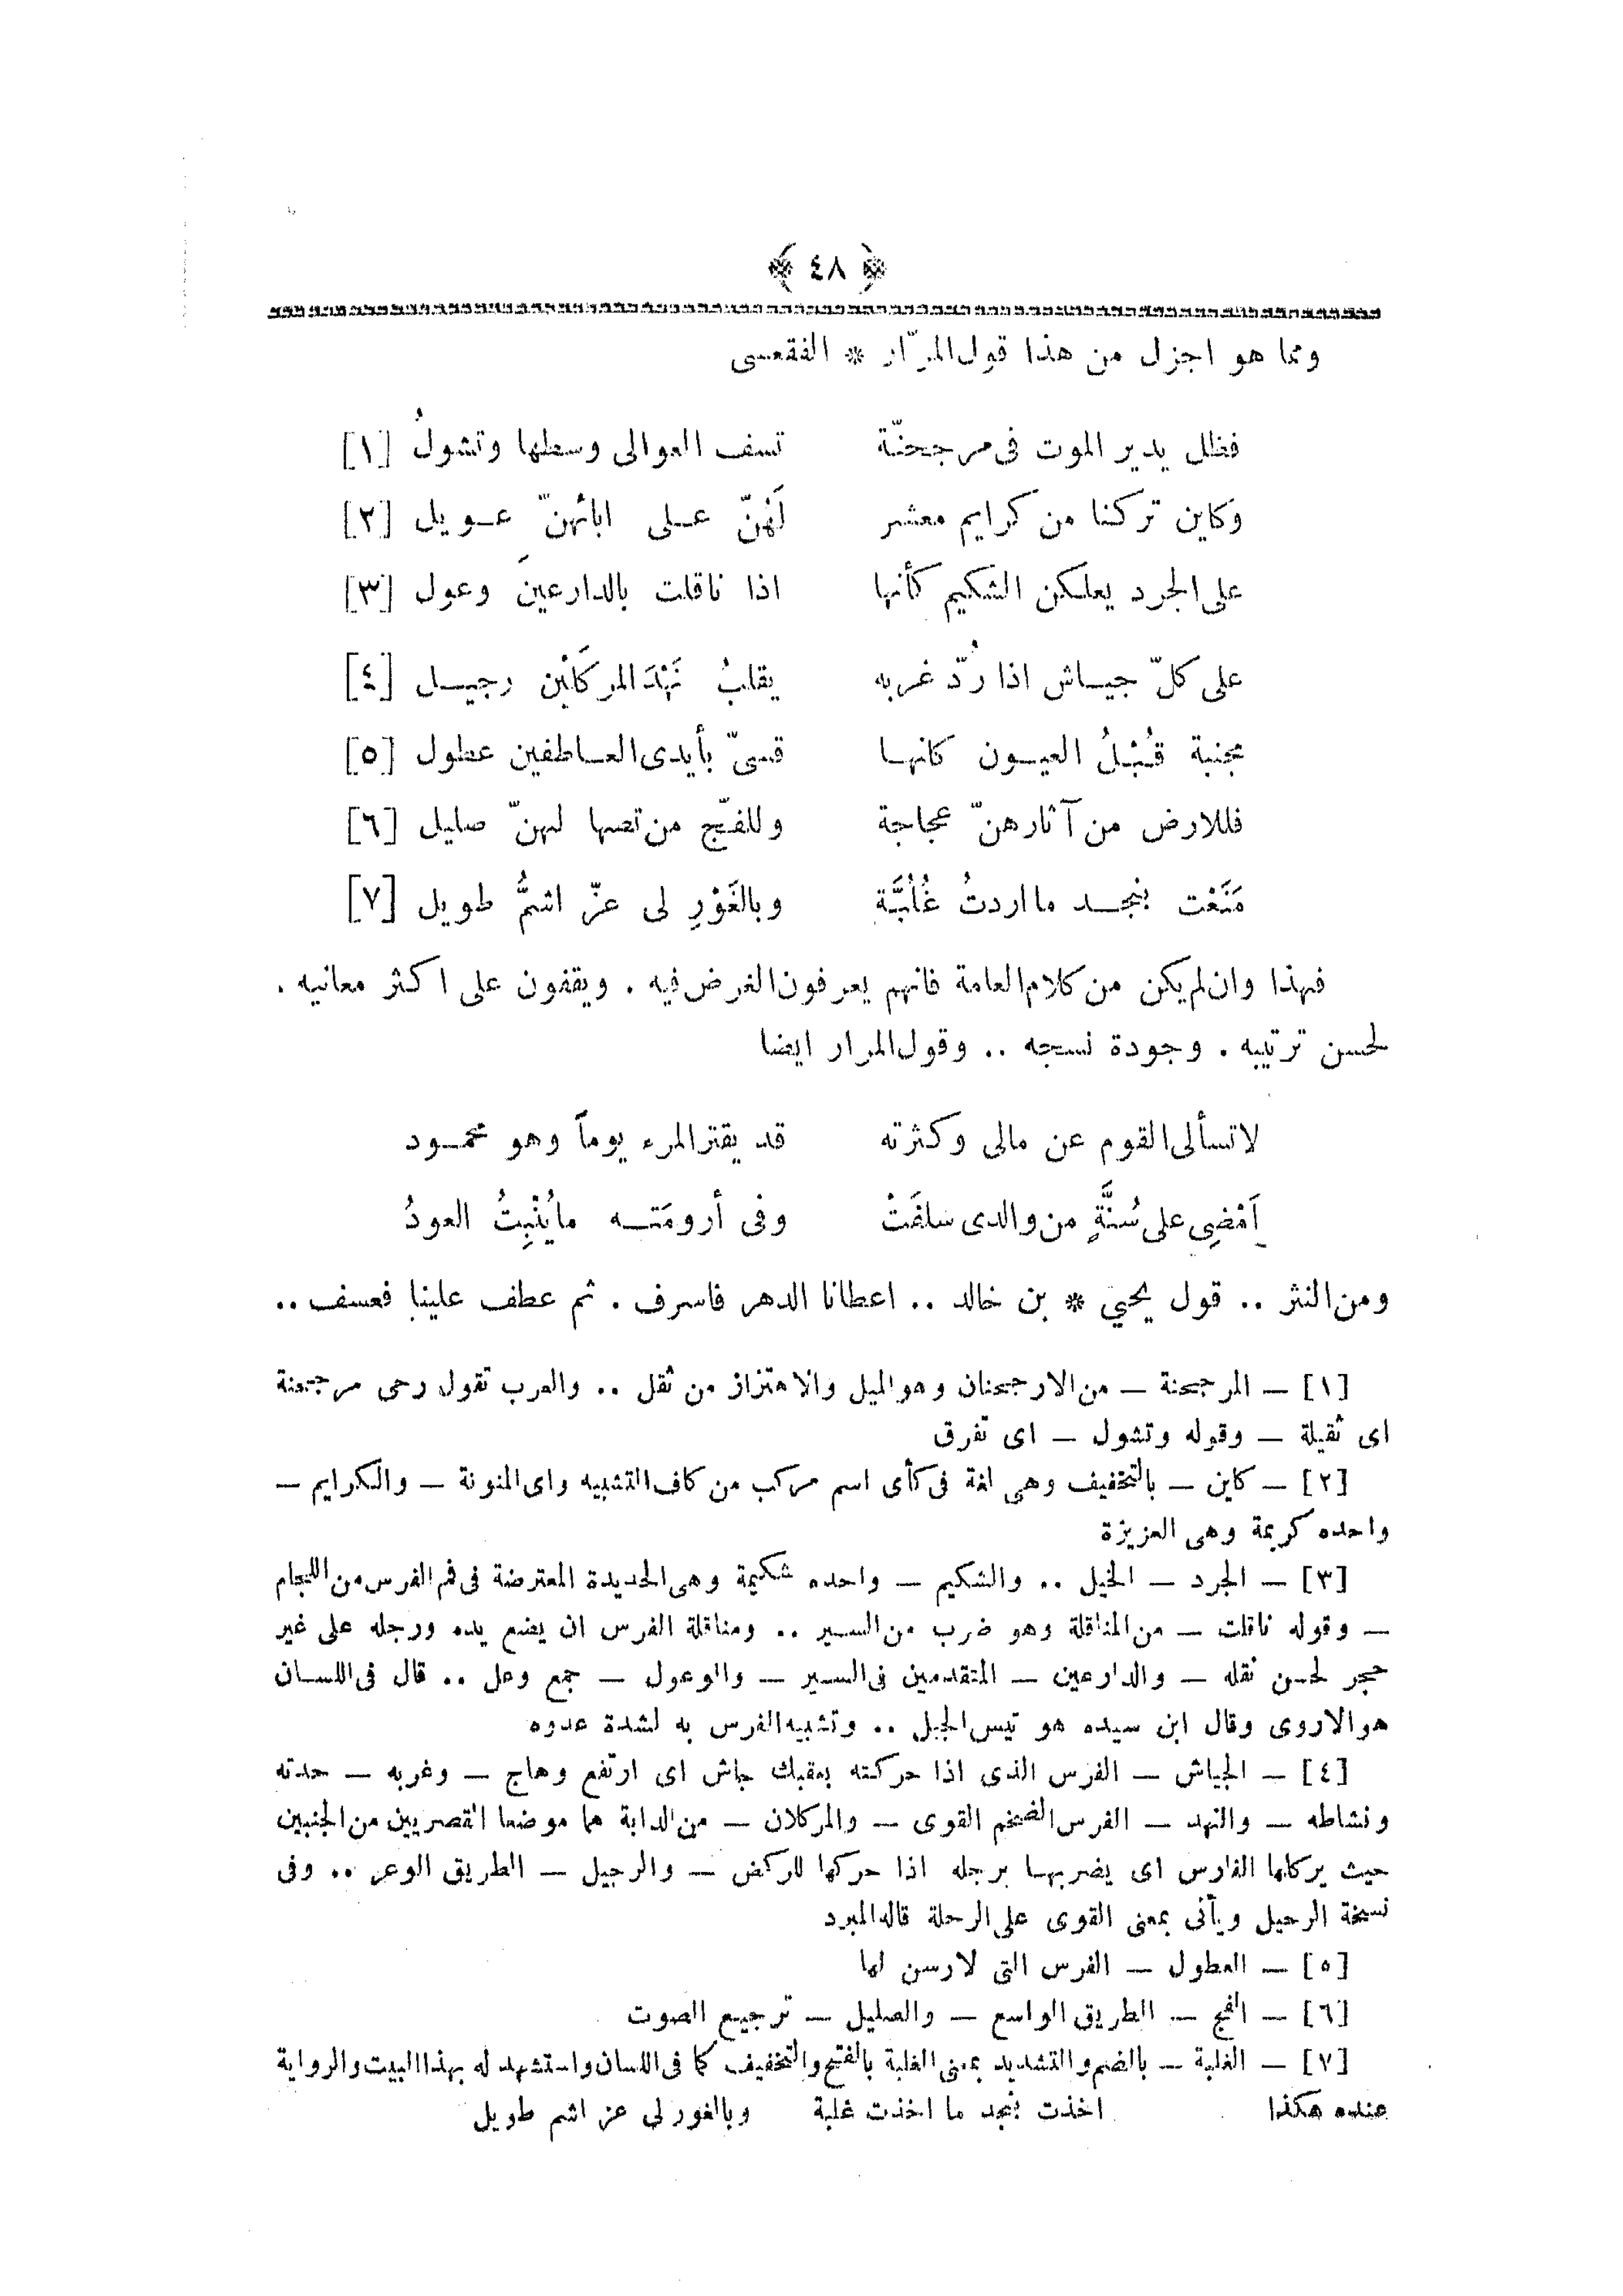 ﴿ ٤٨ ﴾
ومما هو اجزل من هذا قول المرّار * الفقعسى
فظل يدير الموت فى مرجحنّة تسف العوالى وسطها وتشولُ [١]
وكاين تركنا من كرايم معشر لَهُنّ على ابائهنّ عويل [٢]
على الجرد يعلكن الشكيم كأنها اذا ناقلت بالدارعينَ وعول [٣]
على كلّ جياش اذا رُدّ غربه يقلبُ نَهْدَ المركَلَيْن رجيل [٤]
مجنبة قُبْلُ العيون كانها قسىّ بأيدى العاطفين عطول [٥]
فللارض من آثارهنّ عجاجة وللفجّ من تصها لهنّ صليل [٦]
مَنَعْت بنجد ما اردتُ غُلُبَّة وبالغَوْرِ لى عزّ اشمُّ طويل [٧]
فهذا وان لم يكن من كلام العامة فانهم يعرفون الغرض فيه . ويقفون على اكثر معانيه .
لحسن ترتيبه . وجودة نسجه .. وقول المرار ايضا
لا تسألى القوم عن مالى وكثرته قد يقتر المرء يوماً وهو محمود
اَمْضِى على سُنَّةٍ من والدى سلفَتْ وفى أرومَته ما يُنْبِتُ العودُ
ومن النثر .. قول يحيي * بن خالد .. اعطانا الدهر فاسرف . ثم عطف علينا فعسف ..
[١] – المرجحنة – من الارجحنان وهو الميل والاهتزاز من ثقل .. والعرب تقول رحى مرجحنة
اى ثقيلة – وقوله وتشول – اى تفرق
[٢] – كاين – بالتخفيف وهى لغة فى كأى اسم مركب من كاف التشبيه واى المنونة – والكرايم –
واحده كريمة وهى العزيزة
[٣] – الجرد – الخيل .. والشكيم – واحده شكيمة وهى الحديدة المعترضة فى فم الفرس من اللجام
– وقوله ناقلت – من المناقلة وهو ضرب من السير .. ومناقلة الفرس ان يضع يده ورجله على غير
حجر لحسن نقله – والدارعين – المتقدمين فى السير – والوعول – جمع وعل .. قال فى اللسان
هو الاروى وقال ابن سيده هو تيس الجبل .. وتشبيه الفرس به لشدة عدوه
[٤] – الجياش – الفرس الذى اذا حركته بعقبك جاش اى ارتفع وهاج – وغربه – حدته
ونشاطه – والنهد – الفرس الضخم القوى – والمركلان – من الدابة هما موضعا القصريين من الجنبين
حيث يركلها الفارس اى يضربها برجله اذا حركها للركض – والرجيل – الطريق الوعر .. وفى
نسخة الرحيل ويأتى بمعنى القوى على الرحلة قاله المبرد
[٥] – العطول – الفرس التى لا رسن لها
[٦] – الفج – الطريق الواسع – والصليل – ترجيع الصوت
[٧] – الغلبة – بالضم والتشديد بمعنى الغلبة بالفتح والتخفيف كما فى اللسان واستشهد له بهذا البيت والرواية
عنده هكذا اخذت بنجد ما اخذت غلبة وبالغور لى عز اشم طويل